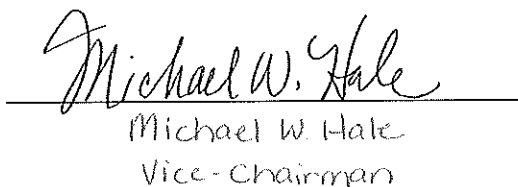 Michael W. Hale
Michael W. Hale
Vice-Chairman